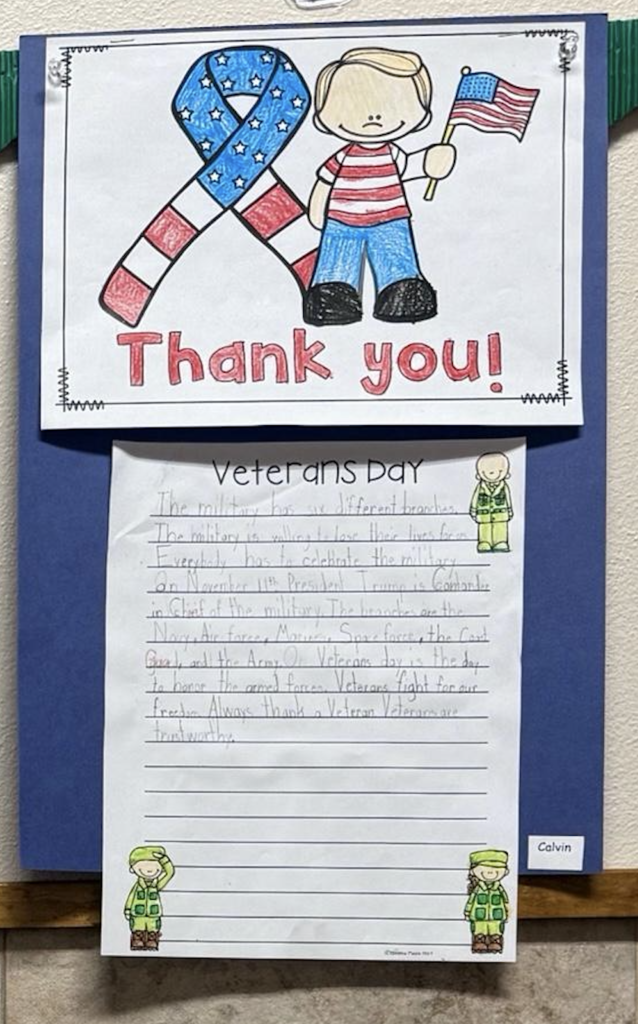 Thank you!
Veterans Day
The military has six different branches.
The military is willing to lose their lives for us
Everybody has to celebrate the military
On November 11th President Trump is
in Chief of the military. The branches are the
Navy, Air force, Marines, Space force, the
Guard, and the Army. On Veterans day is the day
to honor the armed forces. Veterans fight for our
freedom Always thank a Veteran Veterans are
trustworthy.
Calvin